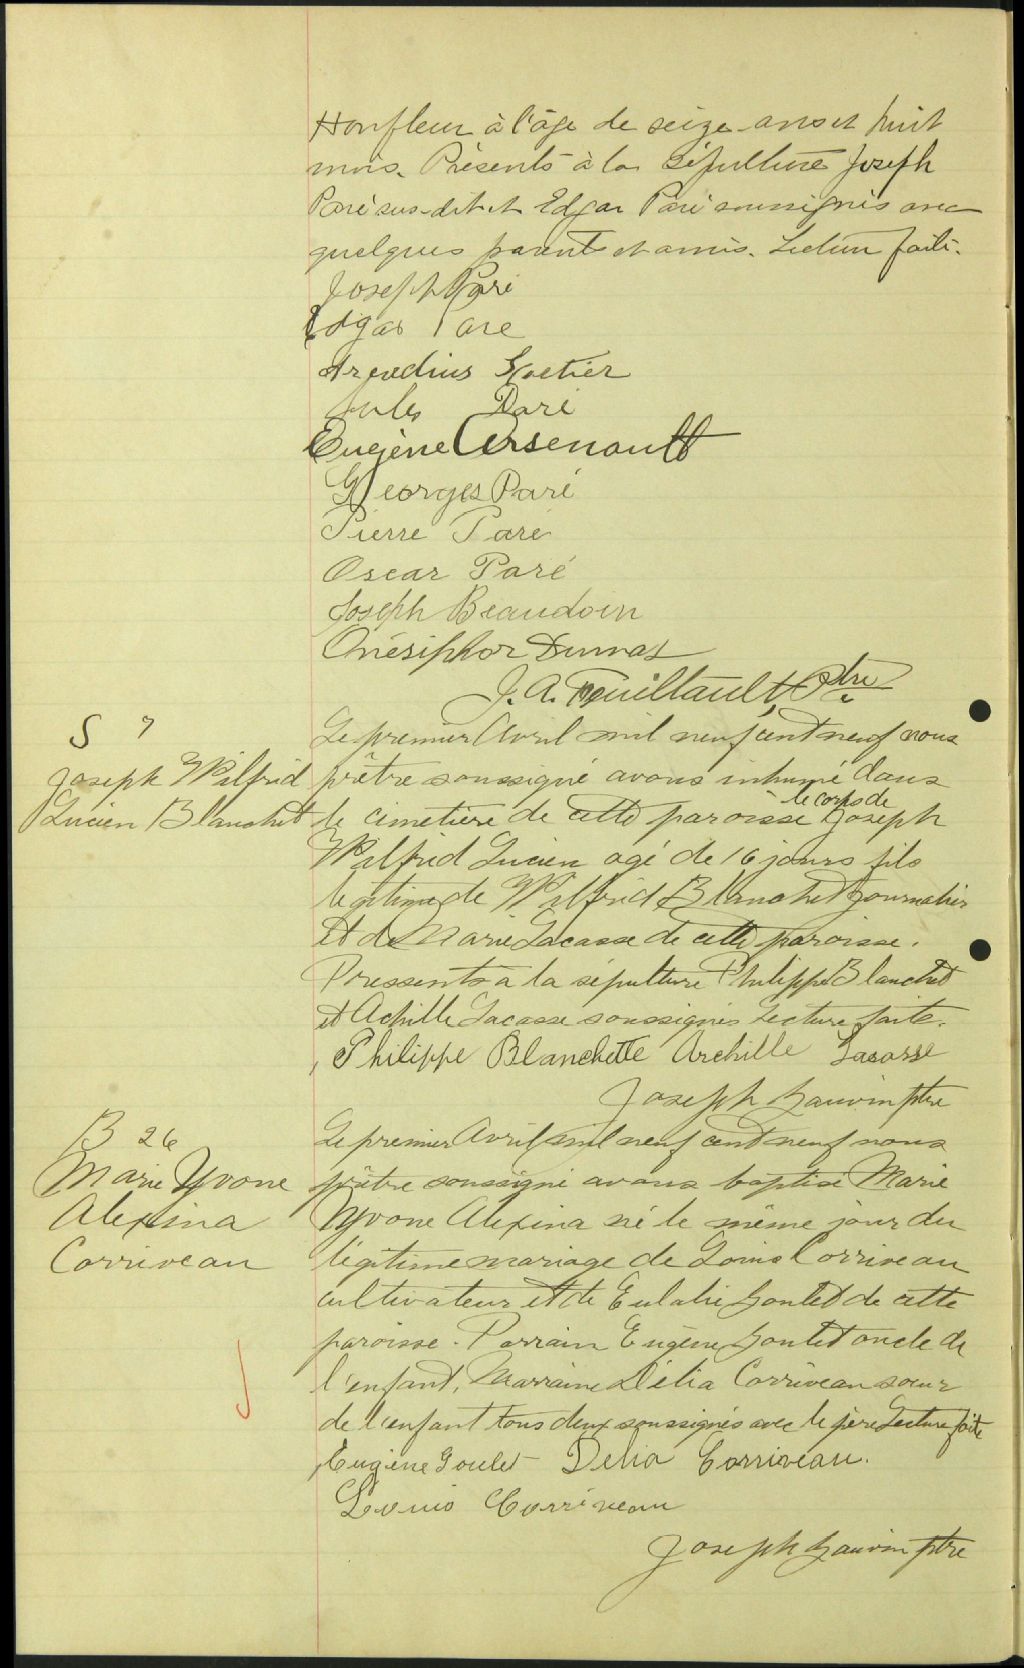 Honfleur à l'âge de seize ans et huit
mois. Présents à la sépulture Joseph
Paré sus-dit et Edgar Paré soussignés avec
quelques parents et amis. Lecture faite.
Joseph Paré
Edgar Pare
Jules Paré
Eugène Arsenault
Georges Paré
Pierre Paré
Oscar Paré
Joseph Beaudoin
Onésiphor Dumas
J. A. Feuiltault, Ptre
S 7
Joseph Wilfrid
Lucien Blanchet
Le premier Avril mil neuf cent neuf nous
prêtre soussigné avons inhumé dans
le cimetière de cette paroisse le corps de Joseph
Wilfrid Lucien agé de 16 jours fils
legitime de Wilfrid Blanchet journalier
et de Marie Lacasse de cette paroisse.
Pressents a la sépulture Philippe Blanchet
et Achille Lacasse soussignés Lecture faite.
Philippe Blanchette Archille Lacasse
Joseph ptre
B 26
Marie Yvone
Alexina
Corriveau
Le premier Avril mil neuf cent neuf nous
prêtre soussigné avons baptisé Marie
Yvone Alexina né le même jour du
légitime mariage de Louis Corriveau
cultivateur et de Eulalie Goulet de cette
paroisse. Parrain Eugène Goulet oncle de
l'enfant, Marraine Délia Corriveau soeur
de l'enfant tous deux soussignés avec le père Lecture faite
Eugène Goulet Delia Corriveau.
Louis Corriveau
Joseph ptre